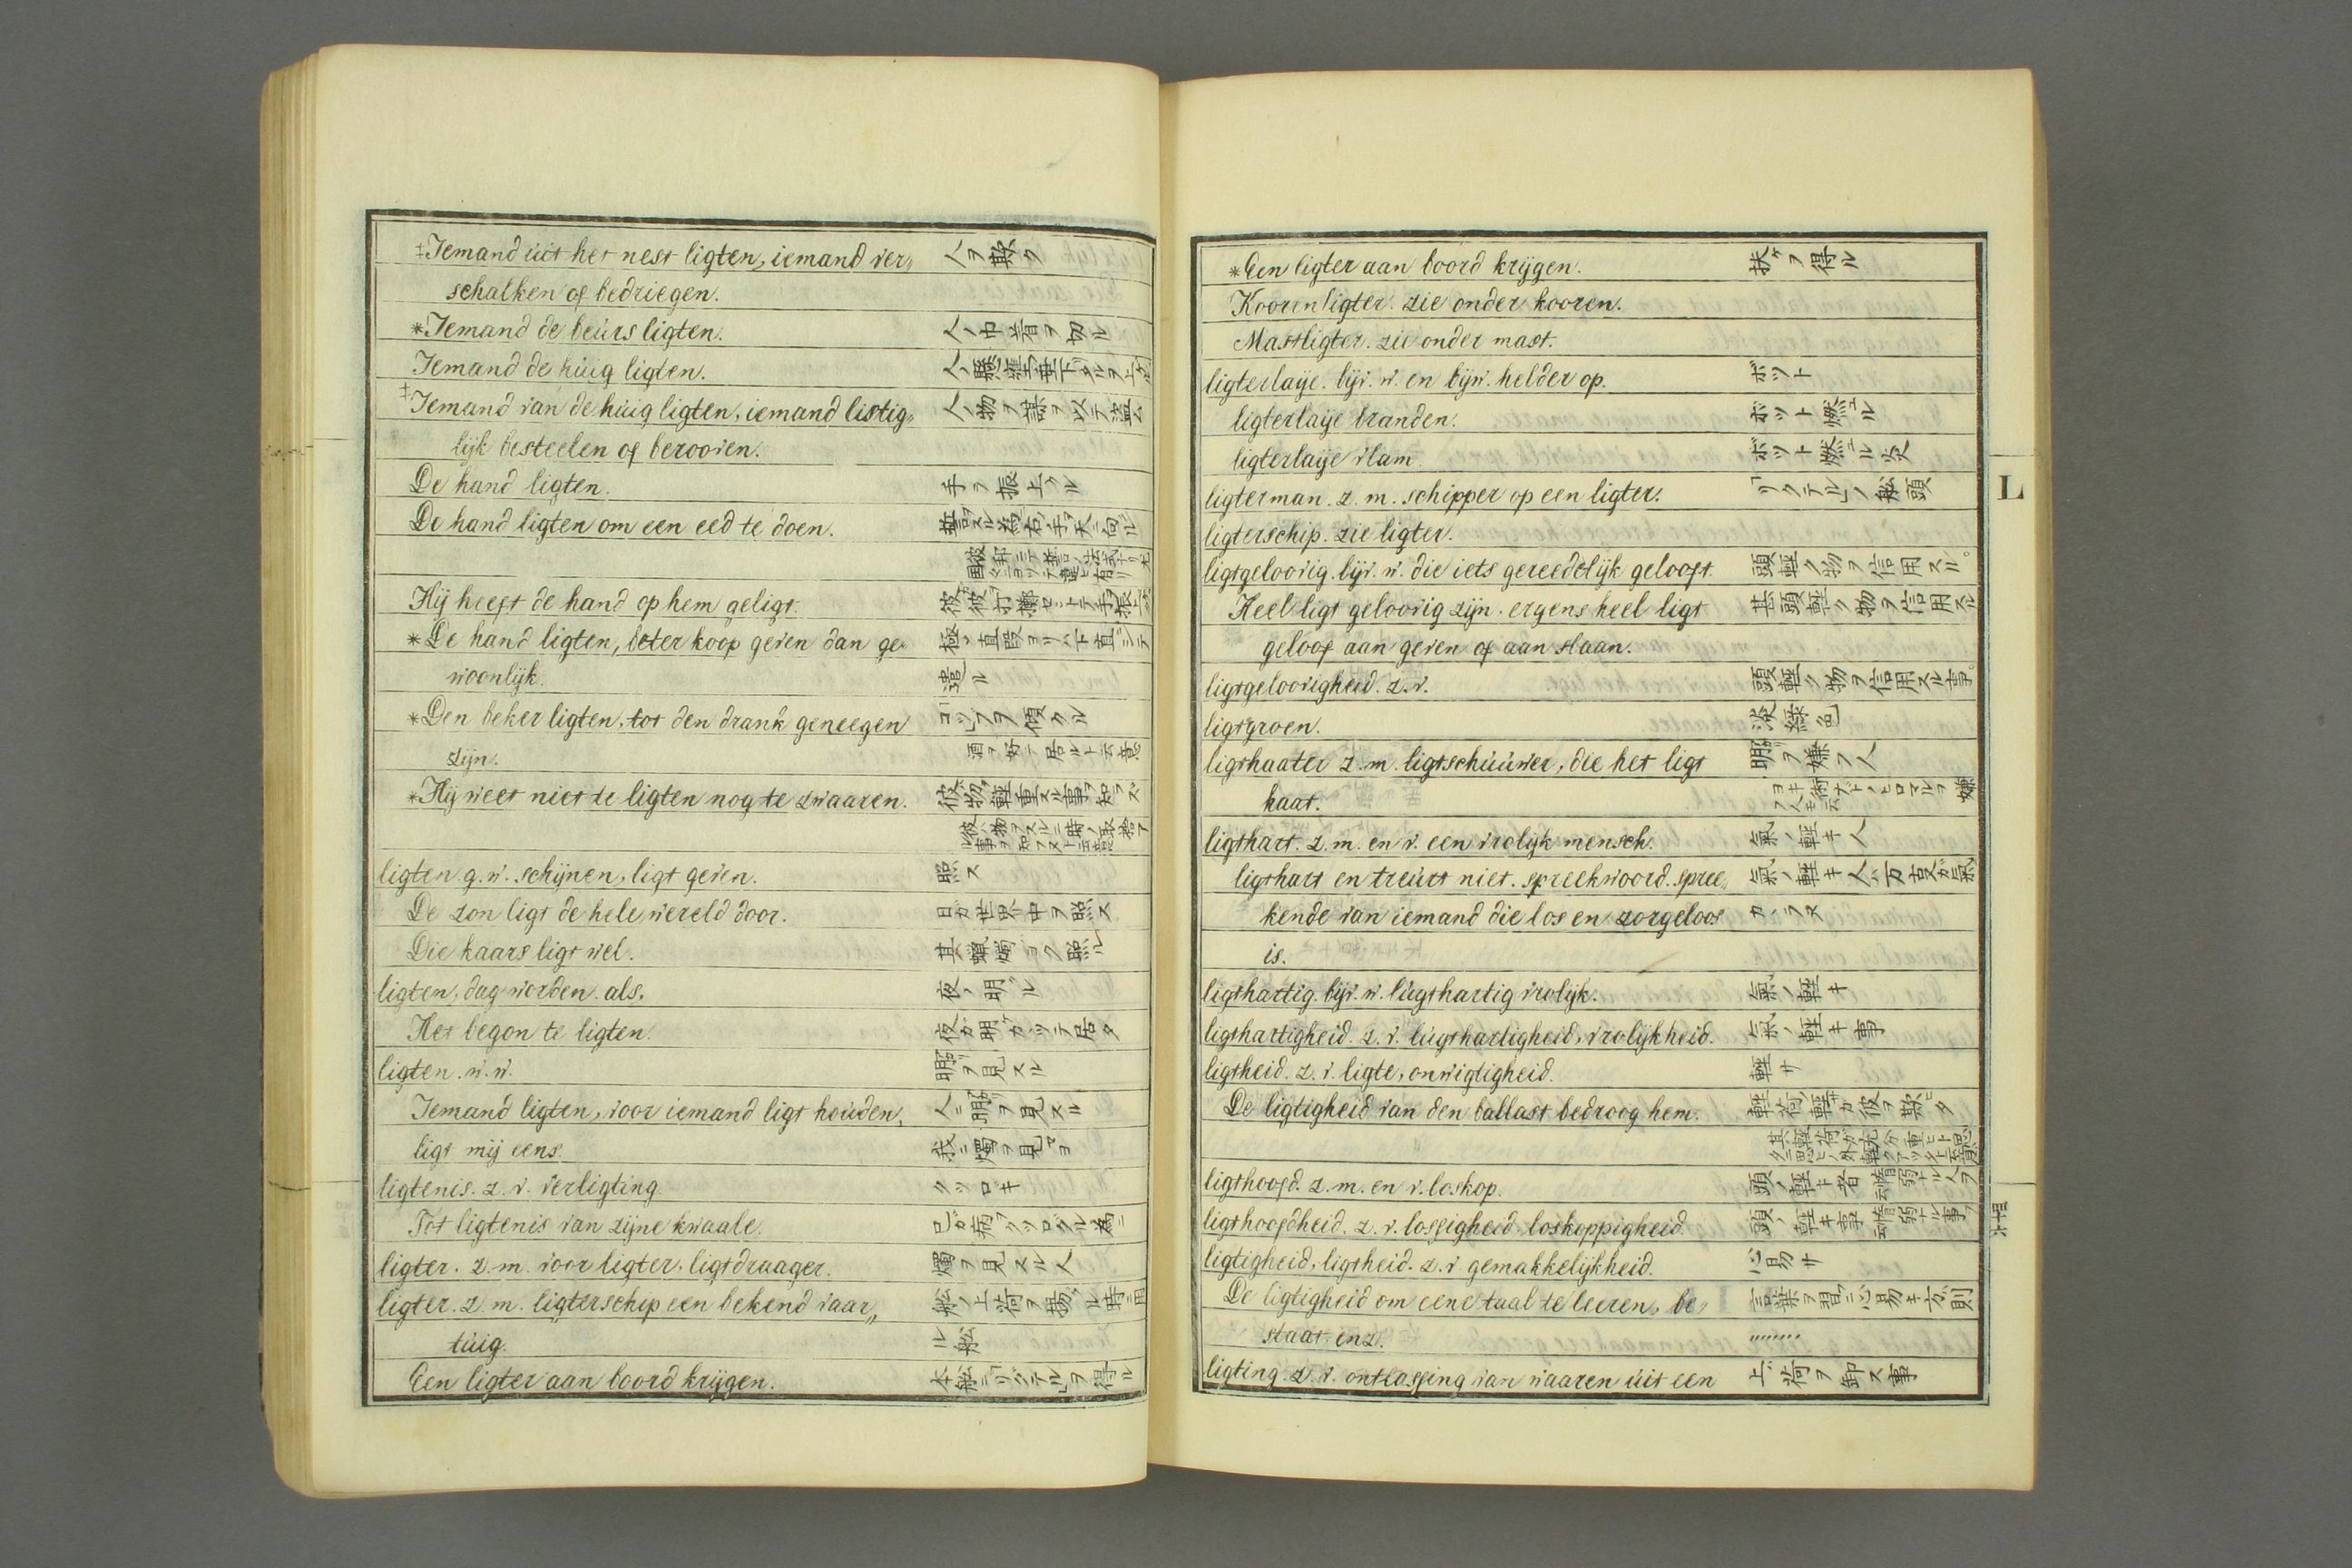 ‡Iemand uit het nest ligten, iemand ver„ 人ヲ欺ク
schalken of bedriegen.
*Iemand de beurs ligten. 人ノ巾着ヲ切ル
Iemand de huig ligten.
‡Iemand van de huig ligten, iemand listig„ 人ノ物ヲ謀ヲ以テ盗ム
lijk besteelen of berooven.
De hand ligten. 手ヲ振上ル
De hand ligten om een eed te doen.
Hij heeft de hand op hem geligt.
*De hand ligten, beter koop geven dan ge„
woonlijk. 遣ル
*Den beker ligten, tot den drank geneegen 「コップ」ヲ傾クル
zijn. 酒ヲ好テ居ルト云意
*Hij weet niet te ligten nog te zwaaren.
ligten. g. w. schijnen, ligt geven. 照ス
De zon ligt de hele wereld door. 日ガ世界中ヲ照ス
Die kaars ligt wel. 其蝋燭ヨク照ル
ligten, dag worden. als. 夜ノ明ル
Het begon te ligten. 夜ガ明カヽツテ居タ
ligten. w. w. 明リヲ見スル
Iemand ligten, voor iemand ligt houden, 人ニ明リヲ見スル
ligt mij eens. 我ニ燭ヲ見セヨ
ligtenis. z. v. verligting. クツロキ
Tot ligtenis van zijne kwaale. 己ガ病ノクツログル為ニ
ligter. z. m. voor ligter, ligtdraager. 燭ヲ見スル人
ligter. z. m. ligterschip een bekend vaar„
tuig. ル舩
Een ligter aan boord krijgen.
*Een ligter aan boord krijgen. 扶ケヲ得ル
Koorenligter. zie onder kooren.
Mastligter. zie onder mast.
ligterlaije. bijv. w. en bijw. helder op. ボット
ligterlaije branden. ボット燃ユル
ligterlaije vlam. ボット燃ユル炎
ligterman. z. m. schipper op een ligter. 「リクテル」ノ舩頭
ligterschip. zie ligter.
ligtgeloovig. bijv. w. die iets gereedelijk gelooft. 頭軽ク物ヲ信用スル
Heel ligt geloovig zijn. ergens heel ligt 甚頭軽ク物ヲ信用スル
geloof aan geven of aan slaan.
ligtgeloovigheid. z. v. 頭軽ク物ヲ信用スル事
ligtgroen. 淡緑色
ligthaater z. m. ligtschuuwer, die het ligt 明リヲ嫌フ人
haat.
ligthart. z. m. en v. een vrolijk mensch. 氣ノ軽キ人
ligthart en treurt niet. spreekwoord. spree„
kende van iemand die los en zorgeloos カヽラヌ
is.
ligthartig. bijv. w. lugthartig vrolijk. 氣ノ軽キ
ligthartigheid. z. v. lugthartigheid, vrolijkheid. 氣ノ軽キ事
ligtheid. z. v. ligte, onwigtigheid. 軽サ
De ligtigheid van den ballast bedroog hem.
ligthoofd. z. m. en v. loskop. 頭ノ軽キ者
ligthoofdheid. z. v. lossigheid loskoppigheid. 頭ノ軽キ事
ligtigheid, ligtheid. z. v. gemakkelijkheid. 心易サ
De ligtigheid om eene taal te leeren, be„
staat. enz.
ligting. z. v. ontlassing van waaren uit een 上荷ヲ卸ス事
L